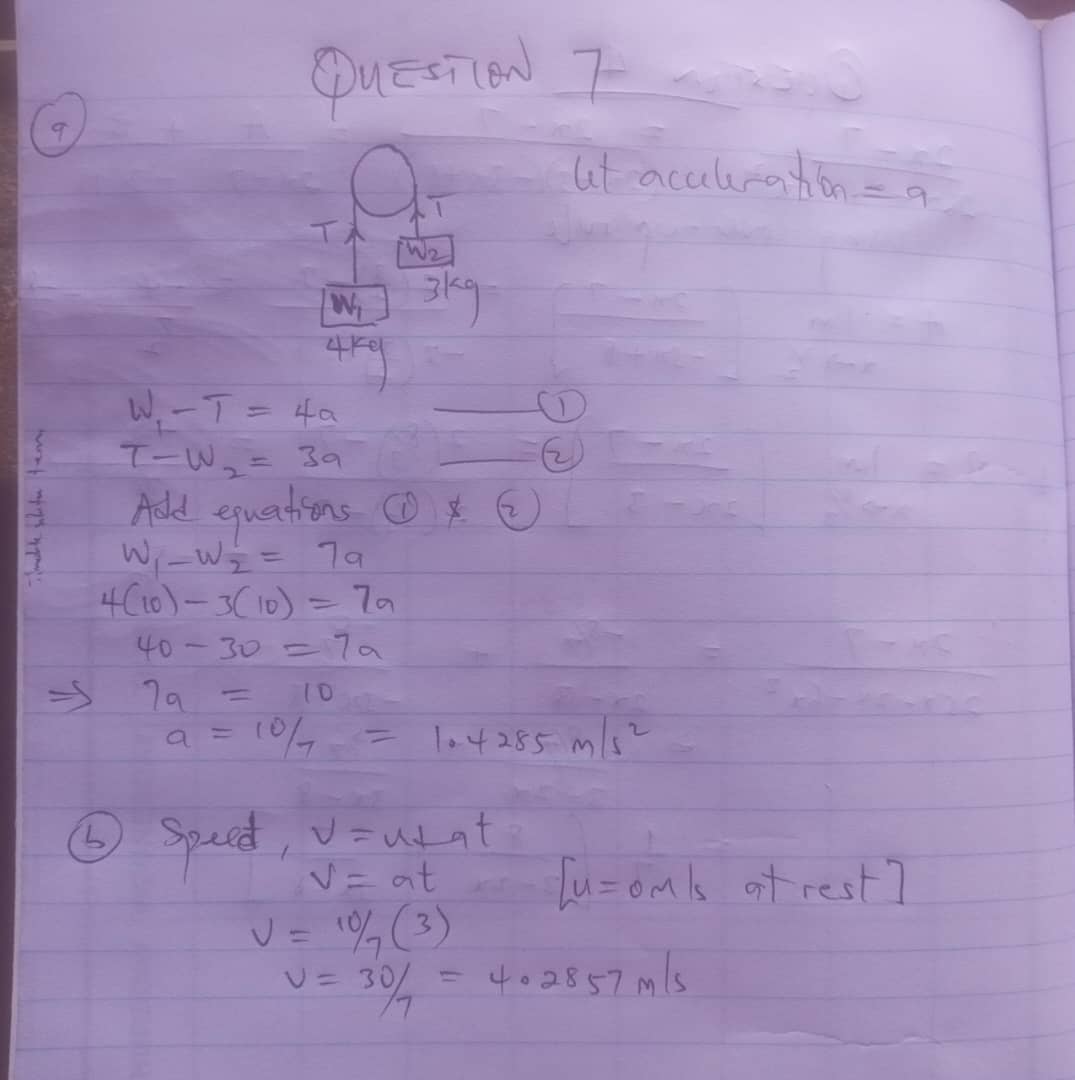 QUESTION 7
a
Let acceleration = a
T
T
W2
3kg
W1
4kg
W1 - T = 4a ——— ①
T - W2 = 3a ——— ②
Add equations ① & ②
W1 - W2 = 7a
4(10) - 3(10) = 7a
40 - 30 = 7a
⇒ 7a = 10
a = 10/7 = 1.4285 m/s²
b Speed, V = u+at
V = at [u=0m/s at rest]
V = 10/7 (3)
V = 30/7 = 4.2857 m/s